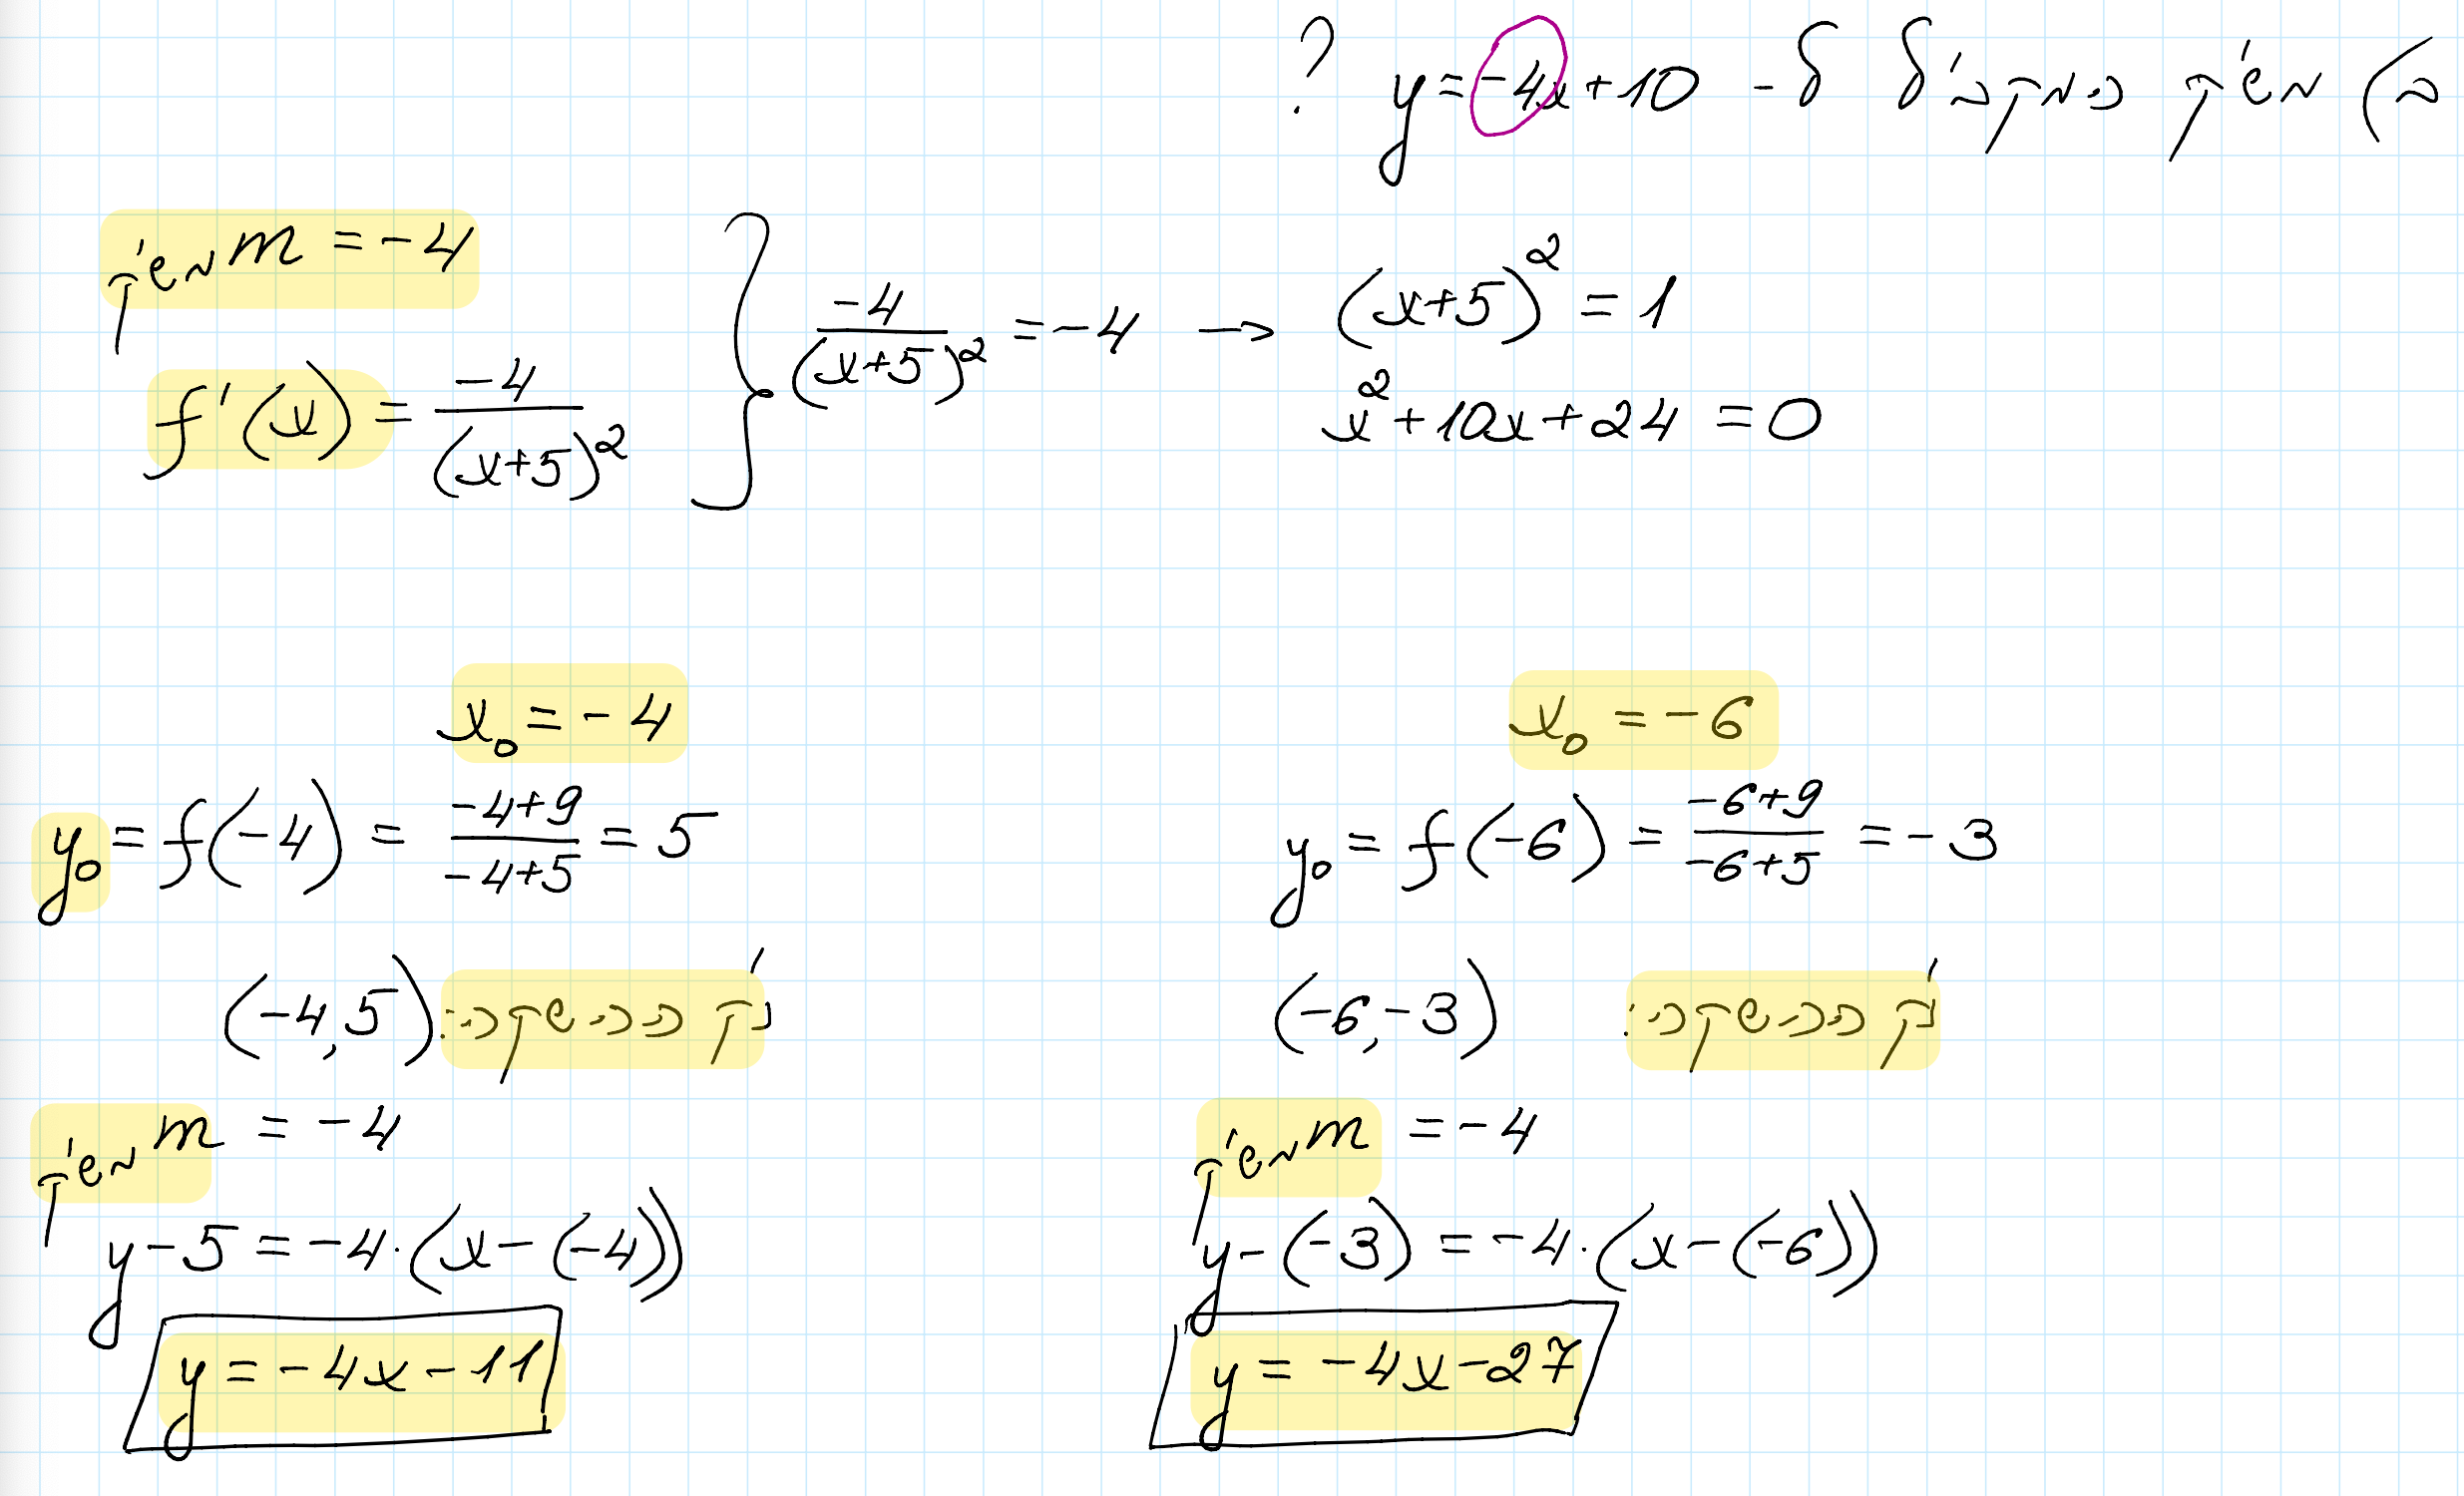 ה) משיק המקביל ל- y = -4x+10 ?
m משיק = -4
f'(x) = -4/(x+5)²
-4/(x+5)² = -4 → (x+5)² = 1
x²+10x+24 = 0
x₀ = -4
y₀ = f(-4) = (-4+9)/(-4+5) = 5
נק' ההשקה: (-4,5)
m משיק = -4
y-5 = -4·(x-(-4))
y = -4x-11
x₀ = -6
y₀ = f(-6) = (-6+9)/(-6+5) = -3
נק' ההשקה: (-6,-3)
m משיק = -4
y-(-3) = -4·(x-(-6))
y = -4x-27